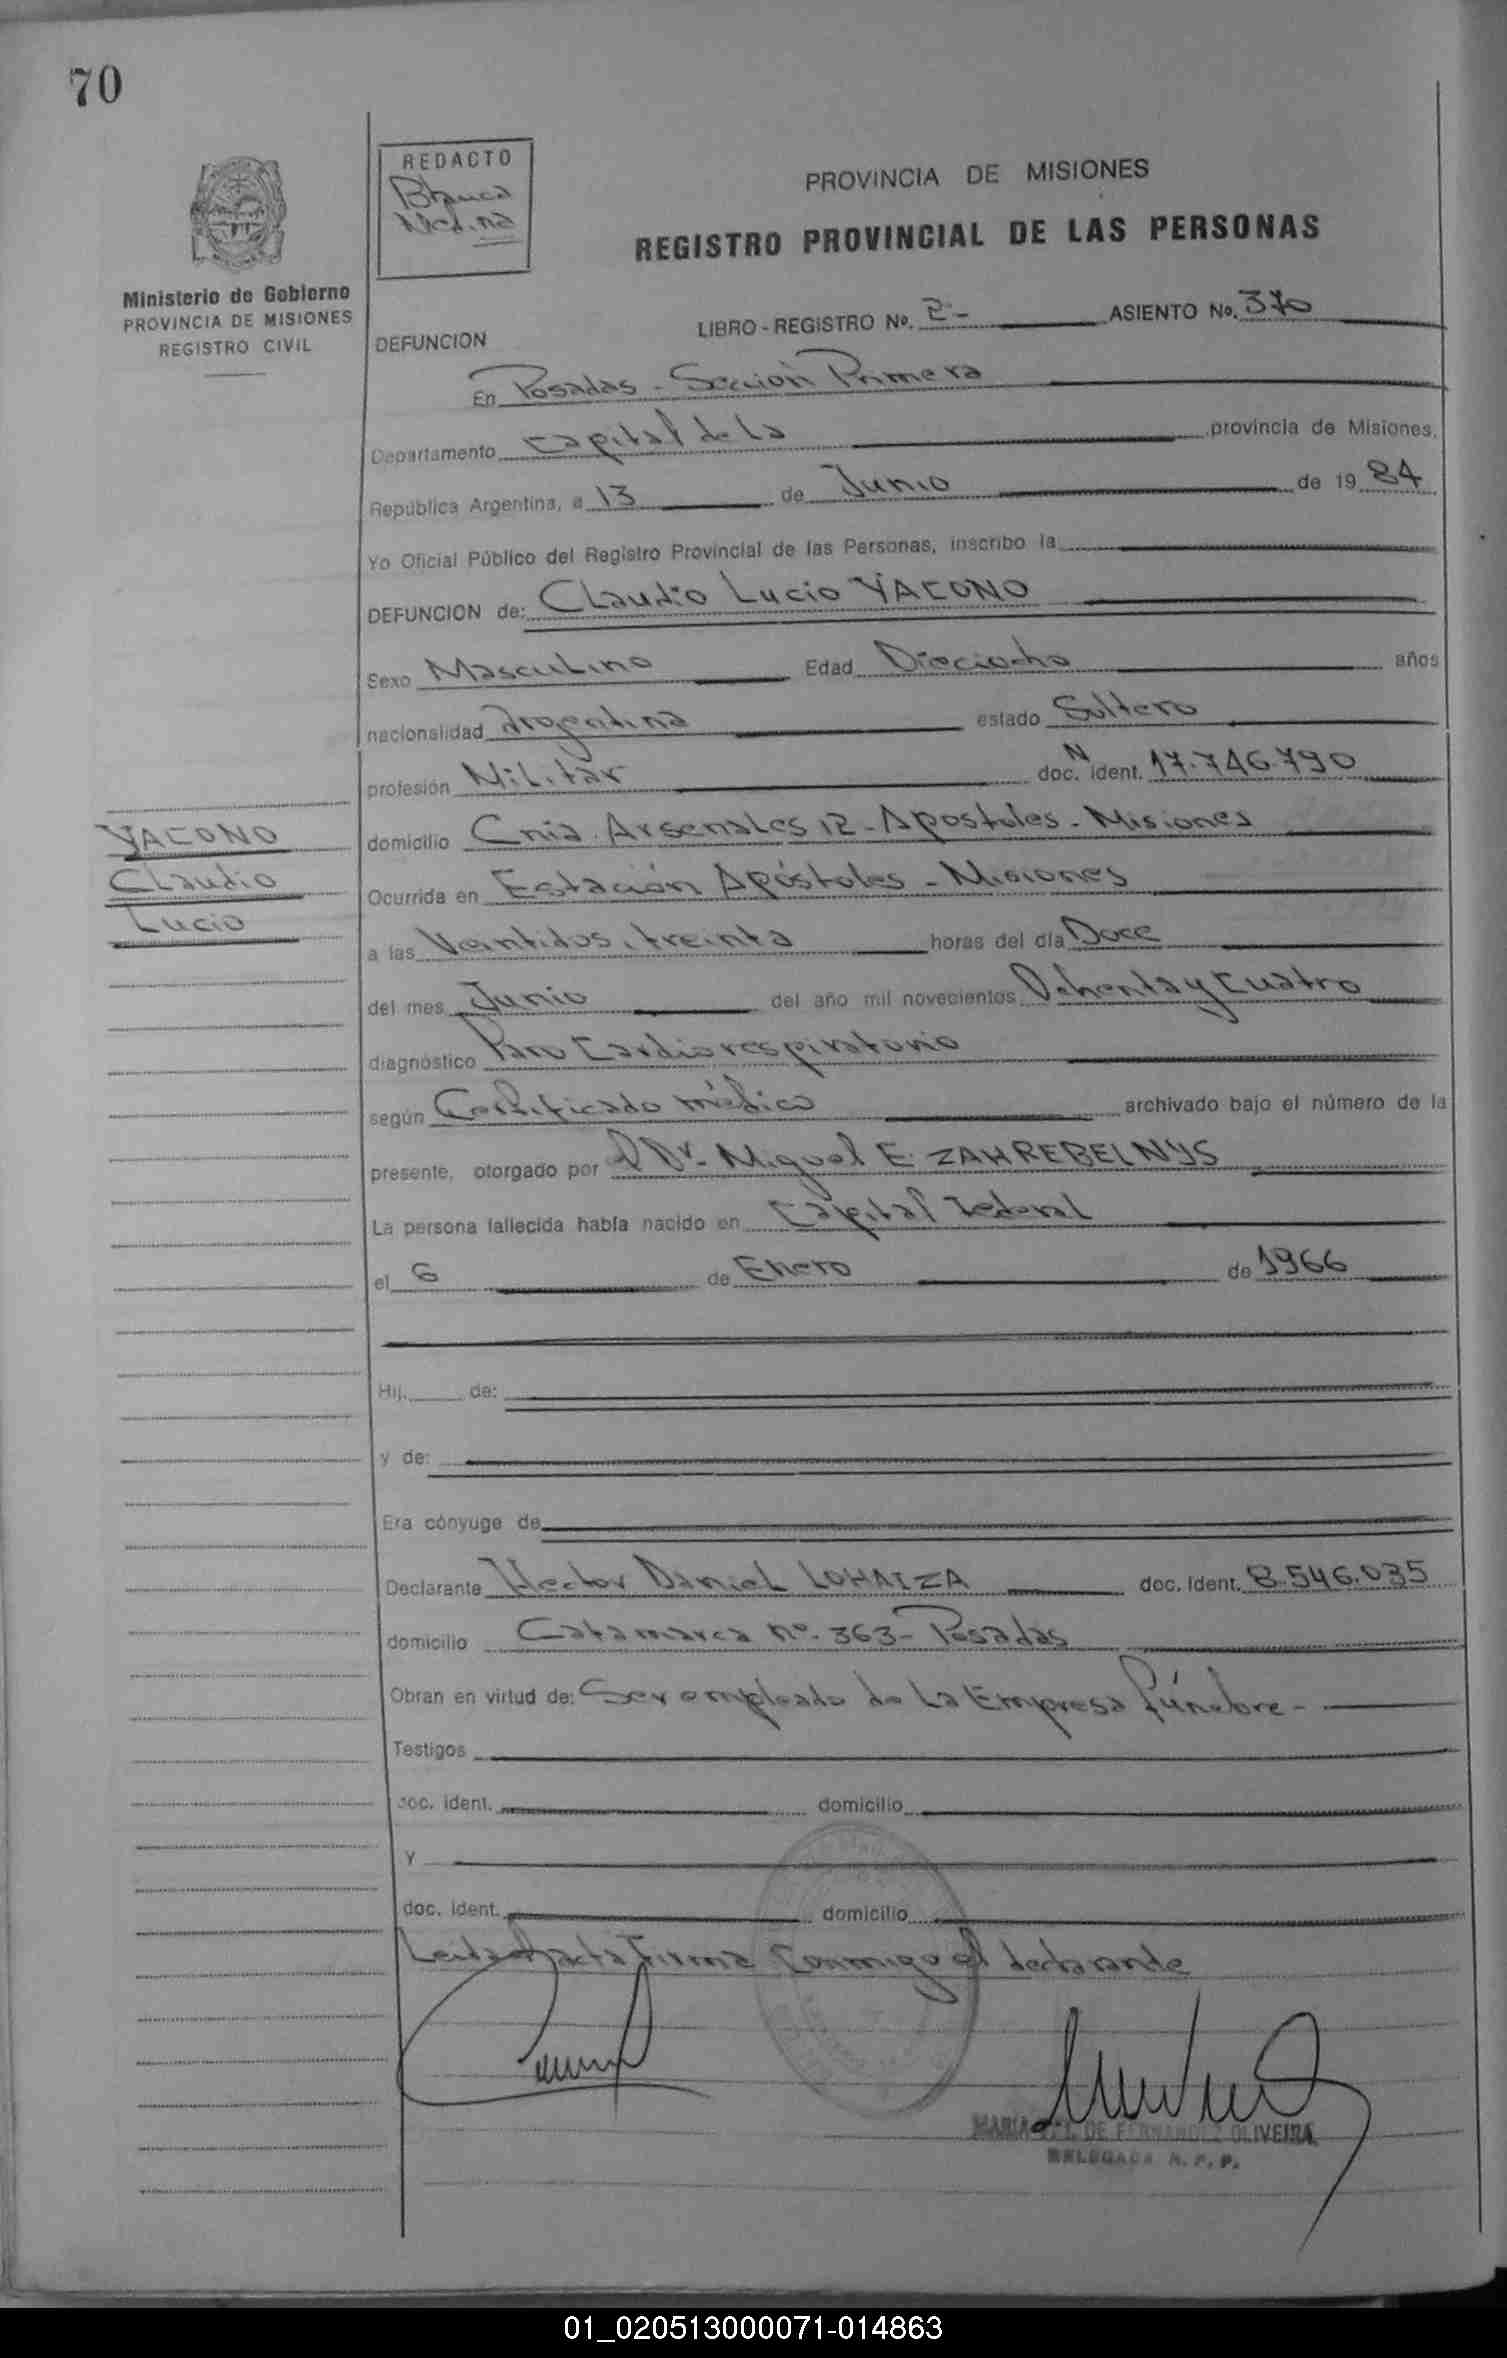 70
REDACTO
Blanca
Medina
PROVINCIA DE MISIONES
REGISTRO PROVINCIAL DE LAS PERSONAS
Ministerio de Gobierno
PROVINCIA DE MISIONES
REGISTRO CIVIL
DEFUNCION LIBRO - REGISTRO No. 2- ASIENTO No. 370
En Posadas - Sección Primera
Departamento Capital de la provincia de Misiones,
República Argentina, a 13 de Junio de 1984
Yo Oficial Público del Registro Provincial de las Personas, inscribo la
DEFUNCION de: Claudio Lucio YACONO
Sexo Masculino Edad Dieciocho años
nacionalidad Argentina estado Soltero
profesión Militar doc. N ident. 17.746.790
YACONO
Claudio
Lucio
domicilio Cnia. Arsenales 12 - Apostoles - Misiones
Ocurrida en Estación Apóstoles - Misiones
a las Veintidos, treinta horas del día Doce
del mes Junio del año mil novecientos Ochenta y Cuatro
diagnóstico Paro Cardiorespiratorio
según Certificado médico archivado bajo el número de la
presente, otorgado por el Dr. Miguel E. ZAHREBELNYS
La persona fallecida había nacido en Capital Federal
el 6 de Enero de 1966
Hij. de:
y de:
Era cónyuge de
Declarante Hector Daniel LOHAIZA doc. ident. 8.546.035
domicilio Catamarca nº- 363- Posadas
Obran en virtud de: Ser empleado de la Empresa fúnebre -
Testigos
doc. ident. domicilio
y
doc. ident. domicilio
Leida el acta firma conmigo el declarante
MARIA DE FERNANDEZ OLIVEIRA
DELEGADA R. P. P.
01_020513000071-014863